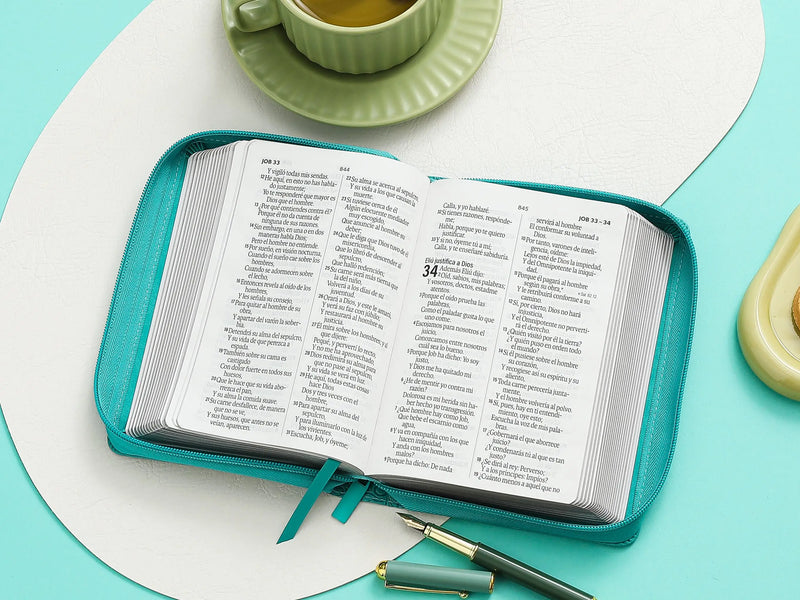 JOB 33
844
Y vigiló todas mis sendas.
12 He aquí, en esto no has habla-
do justamente;
Yo te responderé que mayor es
Dios que el hombre.
13 ¿Por qué contiendes contra él?
Porque él no da cuenta de
ninguna de sus razones.
14 Sin embargo, en una o en dos
maneras habla Dios;
Pero el hombre no entiende.
15 Por sueño, en visión nocturna,
Cuando el sueño cae sobre los
hombres,
Cuando se adormecen sobre
el lecho.
16 Entonces revela al oído de los
hombres,
Y les señala su consejo,
17 Para quitar al hombre de su
obra,
Y apartar del varón la sober-
bia.
18 Detendrá su alma del sepulcro,
Y su vida de que perezca a
espada.
19 También sobre su cama es
castigado
Con dolor fuerte en todos sus
huesos,
20 Que le hace que su vida abo-
rrezca el pan,
Y su alma la comida suave.
21 Su carne desfallece, de manera
que no se ve,
Y sus huesos, que antes no se
veían, aparecen.
22 Su alma se acerca al sepulcro,
Y su vida a los que causan la
muerte.
23 Si tuviese cerca de él
Algún elocuente mediador
muy escogido,
Que anuncie al hombre su
deber;
24 Que le diga que Dios tuvo de él
misericordia,
Que lo libró de descender al
sepulcro,
Que halló redención;
25 Su carne será más tierna que
la del niño,
Volverá a los días de su
juventud.
26 Orará a Dios, y éste le amará,
Y verá su faz con júbilo;
Y restaurará al hombre su
justicia.
27 Él mira sobre los hombres; y al
que dijere:
Pequé, y pervertí lo recto,
Y no me ha aprovechado,
28 Dios redimirá su alma para
que no pase al sepulcro,
Y su vida se verá en luz.
29 He aquí, todas estas cosas
hace Dios
Dos y tres veces con el
hombre,
30 Para apartar su alma del
sepulcro,
Y para iluminarlo con la luz de
los vivientes.
31 Escucha, Job, y óyeme;
845
JOB 33 – 34
Calla, y yo hablaré.
32 Si tienes razones, respónde-
me;
Habla, porque yo te quiero
justificar.
33 Y si no, óyeme tú a mí;
Calla, y te enseñaré sabiduría.
Eliú justifica a Dios
34 Además Eliú dijo:
2 Oíd, sabios, mis palabras;
Y vosotros, doctos, estadme
atentos.
3 Porque el oído prueba las
palabras,
Como el paladar gusta lo que
uno come.
4 Escojamos para nosotros el
juicio,
Conozcamos entre nosotros
cuál sea lo bueno.
5 Porque Job ha dicho: Yo soy
justo,
Y Dios me ha quitado mi
derecho.
6 ¿He de mentir yo contra mi
razón?
Dolorosa es mi herida sin ha-
ber hecho yo transgresión.
7 ¿Qué hombre hay como Job,
Que bebe el escarnio como
agua,
8 Y va en compañía con los que
hacen iniquidad,
Y anda con los hombres
malos?
9 Porque ha dicho: De nada
servirá al hombre
El conformar su voluntad a
Dios.
10 Por tanto, varones de inteli-
gencia, oídme:
Lejos esté de Dios la impiedad,
Y del Omnipotente la iniqui-
dad.
11 Porque él pagará al hombre
según su obra,
Y le retribuirá conforme a su
camino.
12 Sí, por cierto, Dios no hará
injusticia,
Y el Omnipotente no perverti-
rá el derecho.
13 ¿Quién visitó por él la tierra?
¿Y quién puso en orden todo
el mundo?
14 Si él pusiese sobre el hombre
su corazón,
Y recogiese así su espíritu y su
aliento,
15 Toda carne perecería junta-
mente,
Y el hombre volvería al polvo.
16 Si, pues, hay en ti entendi-
miento, oye esto;
Escucha la voz de mis pala-
bras.
17 ¿Gobernará el que aborrece
juicio?
¿Y condenarás tú al que es tan
justo?
18 ¿Se dirá al rey: Perverso;
Y a los príncipes: Impíos?
19 ¿Cuánto menos a aquel que no